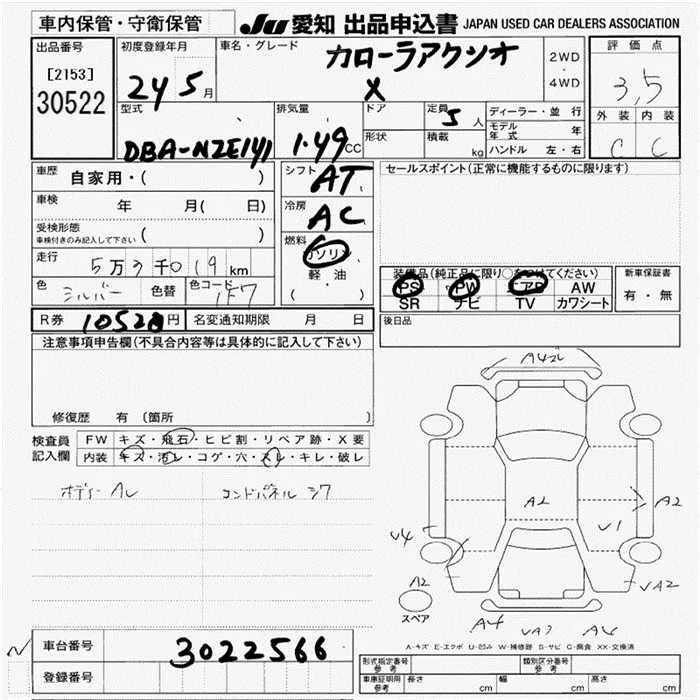 車内保管・守衛保管
JU 愛知 出品申込書 JAPAN USED CAR DEALERS ASSOCIATION
出品番号 初度登録年月 車名・グレード カローラアクシオ 2WD 評価点
[2153] 24 5月 X 4WD 3,5
30522
型式 排気量 ドア 定員 5人 ディーラー・並行 外装 内装
DBA-NZE141 1.49CC 形状 積載 kg モデル年式 年 C C
ハンドル 左・右
車歴 自家用・( ) シフト AT セールスポイント(正常に機能するものに限ります)
車検 年 月( 日) 冷房 AC
受検形態
車検付きのみ記入して下さい ( )
燃料 ガソリン
走行 5万3千019km 軽油
装備品(純正品に限り○をつけてください) 新車保証書
色 シルバー 色替 色コード 1F7 ( )
PS PW エアB AW 有・無
SR ナビ TV カワシート
R券 10520円 名変通知期限 月 日 後日品
注意事項申告欄(不具合内容等は具体的に記入して下さい)
修復歴 有 (箇所 )
検査員 FW キズ・飛石・ヒビ割・リペア跡・X要
記入欄 内装 キズ・汚レ・コゲ・穴・スレ・キレ・破レ
ボディー ALコンドパネル シワ
A2
A2
V1
V4
A2
VA2
スペア
A4 VA3 A4
A-キズ E-エクボ U-凹み W-補修跡 S-サビ C-腐食 XX-交換済
車台番号 3022566
登録番号
形式指定番号 参考 類別区分番号 参考
車庫証明用 参考 長さ cm 幅 cm 高さ cm